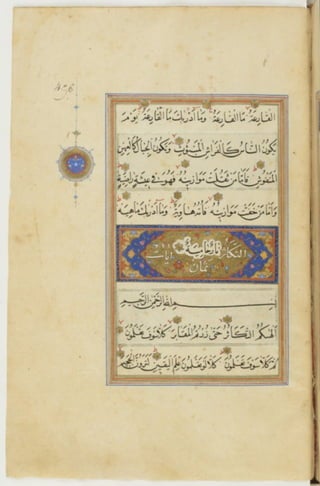 القارعة ما القارعة وما أدريك ما القارعة يوم
يكون الناس كالفراش المبثوث وتكون الجبال كالعهن
المنفوش فأما من ثقلت موازينه فهو في عيشة راضية
وأما من خفت موازينه فأمه هاوية وما أدريك ماهيه
التكاثر ثمان آيات
بسم الله الرحمن الرحيم
ألهيكم التكاثر حتى زرتم المقابر كلا سوف تعلمون
ثم كلا سوف تعلمون كلا لو تعلمون علم اليقين لترون الجحيم